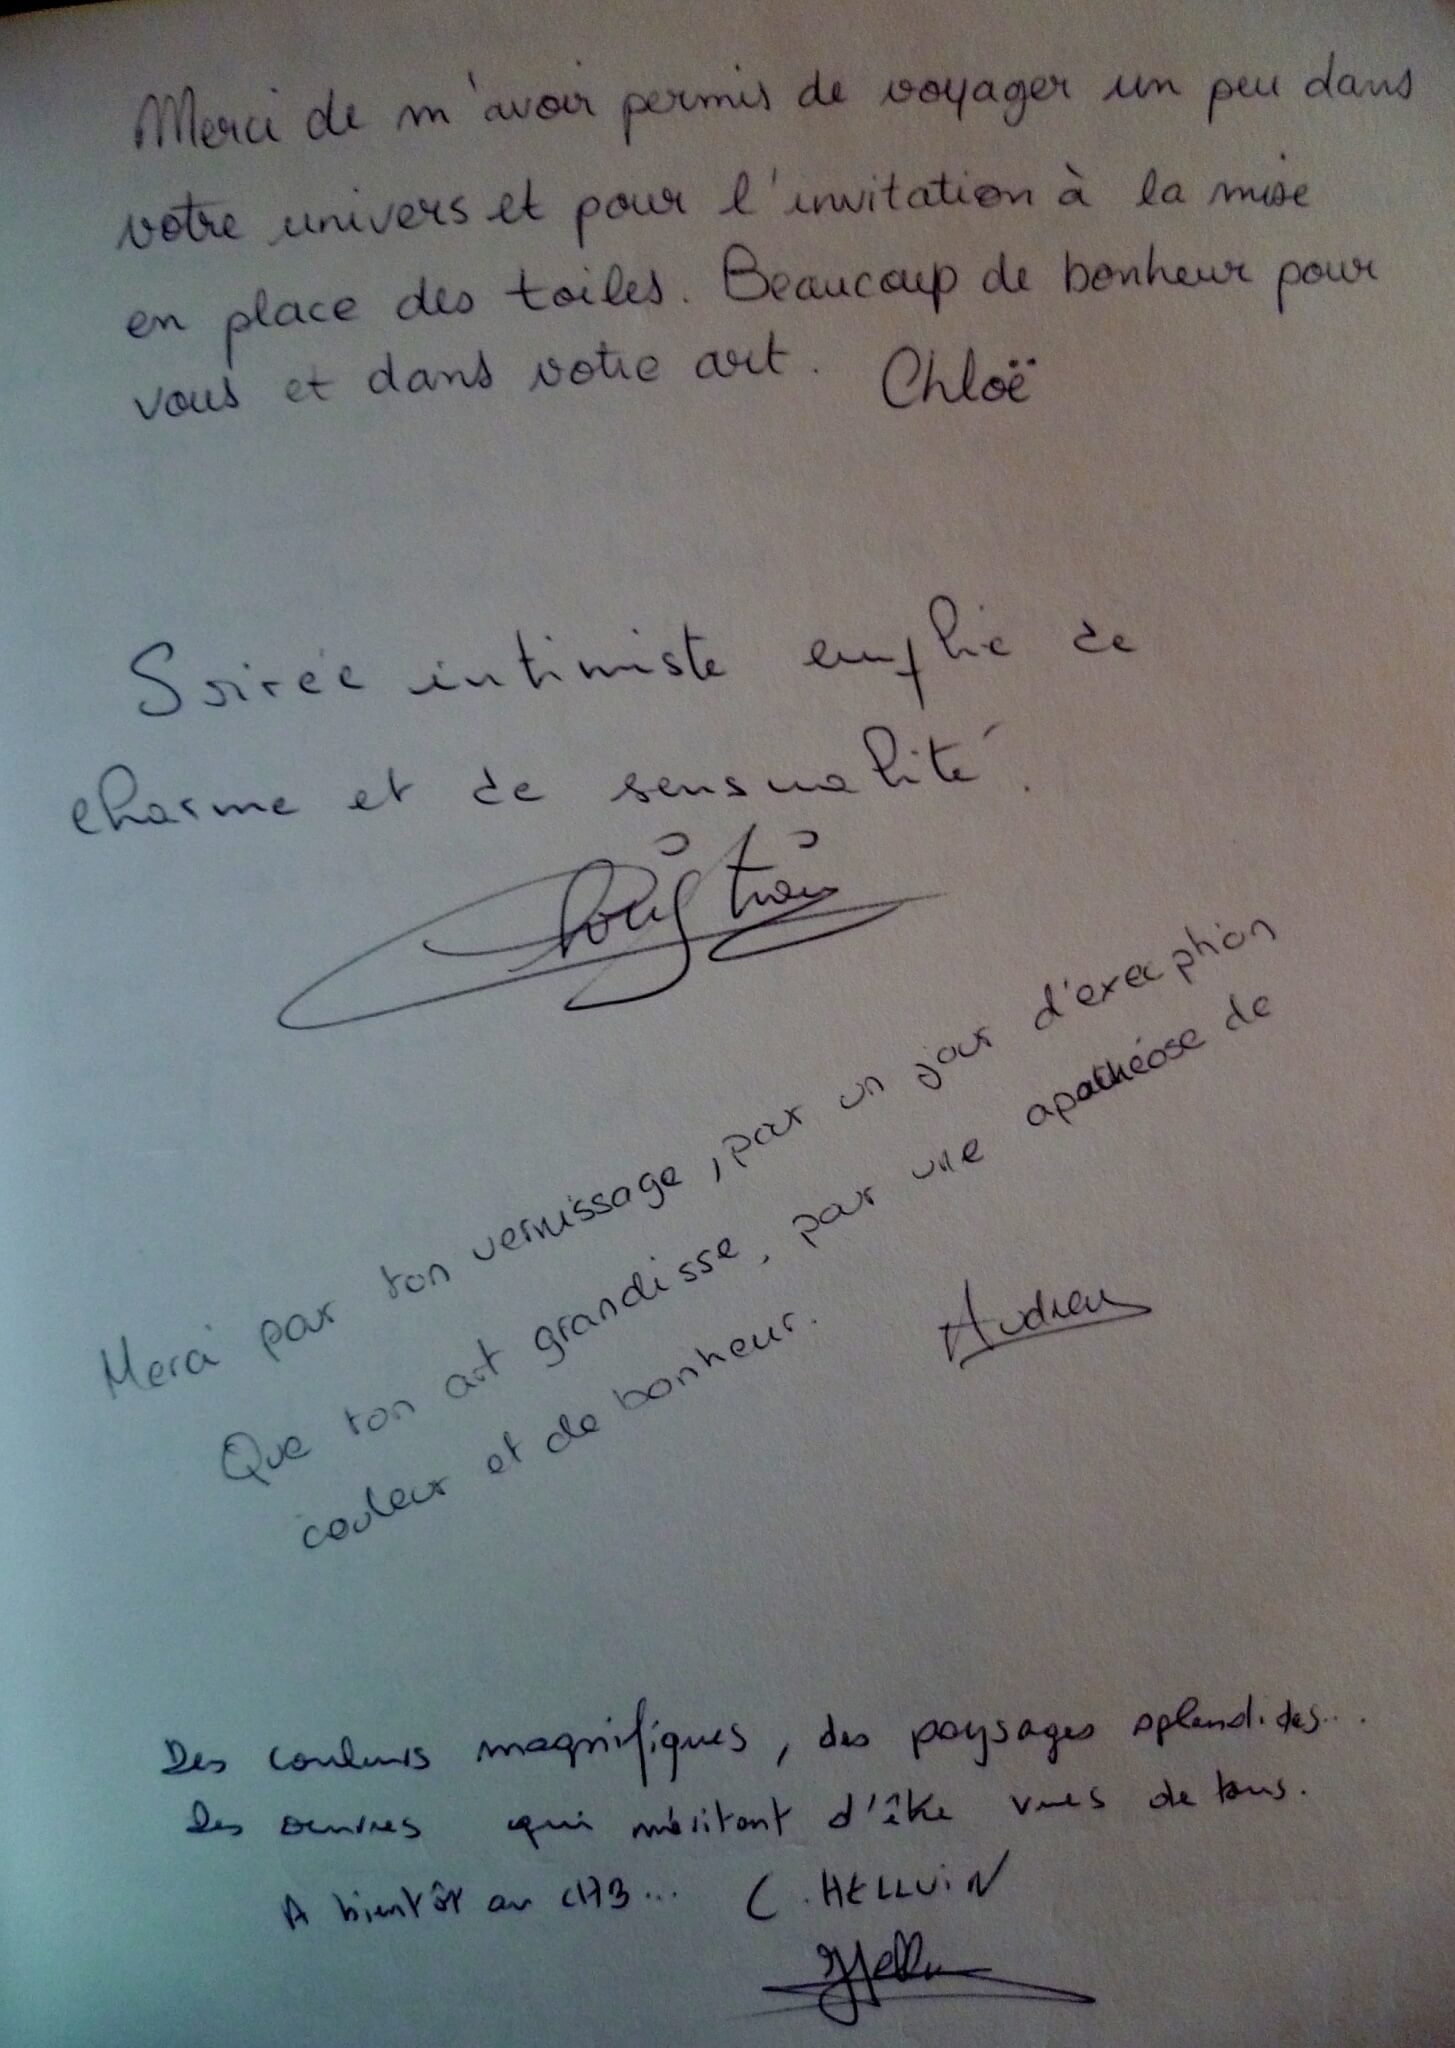 Merci de m'avoir permis de voyager un peu dans
votre univers et pour l'invitation à la mise
en place des toiles. Beaucoup de bonheur pour
vous et dans votre art. Chloë
Soirée intimiste emplie de
charme et de sensualité.
Christian
Merci pour ton vernissage, pour un jour d'exception
Que ton art grandisse, pour une apothéose de
couleur et de bonheur.
Des couleurs magnifiques, des paysages splendides...
Des œuvres qui méritent d'être vues de tous.
A bientôt au CHB... C. HELLUIN